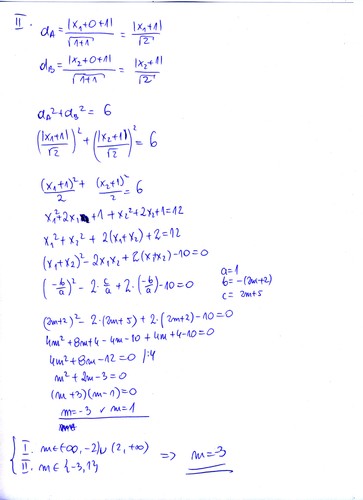 II. d_A = |x₁+0+1| / √(1+1) = |x₁+1| / √2
d_B = |x₂+0+1| / √(1+1) = |x₂+1| / √2
d_A² + d_B² = 6
(|x₁+1| / √2)² + (|x₂+1| / √2)² = 6
(x₁+1)² / 2 + (x₂+1)² / 2 = 6
x₁² + 2x₁ + 1 + x₂² + 2x₂ + 1 = 12
x₁² + x₂² + 2(x₁+x₂) + 2 = 12
(x₁+x₂)² - 2x₁x₂ + 2(x₁+x₂) - 10 = 0
(-b/a)² - 2·c/a + 2·(-b/a) - 10 = 0
a = 1
b = -(2m+2)
c = 2m+5
(2m+2)² - 2·(2m+5) + 2·(2m+2) - 10 = 0
4m² + 8m + 4 - 4m - 10 + 4m + 4 - 10 = 0
4m² + 8m - 12 = 0 /:4
m² + 2m - 3 = 0
(m+3)(m-1) = 0
m = -3 ∨ m = 1
I. m ∈ (-∞, -2) ∪ (2, +∞)
II. m ∈ {-3, 1}
=> m = -3